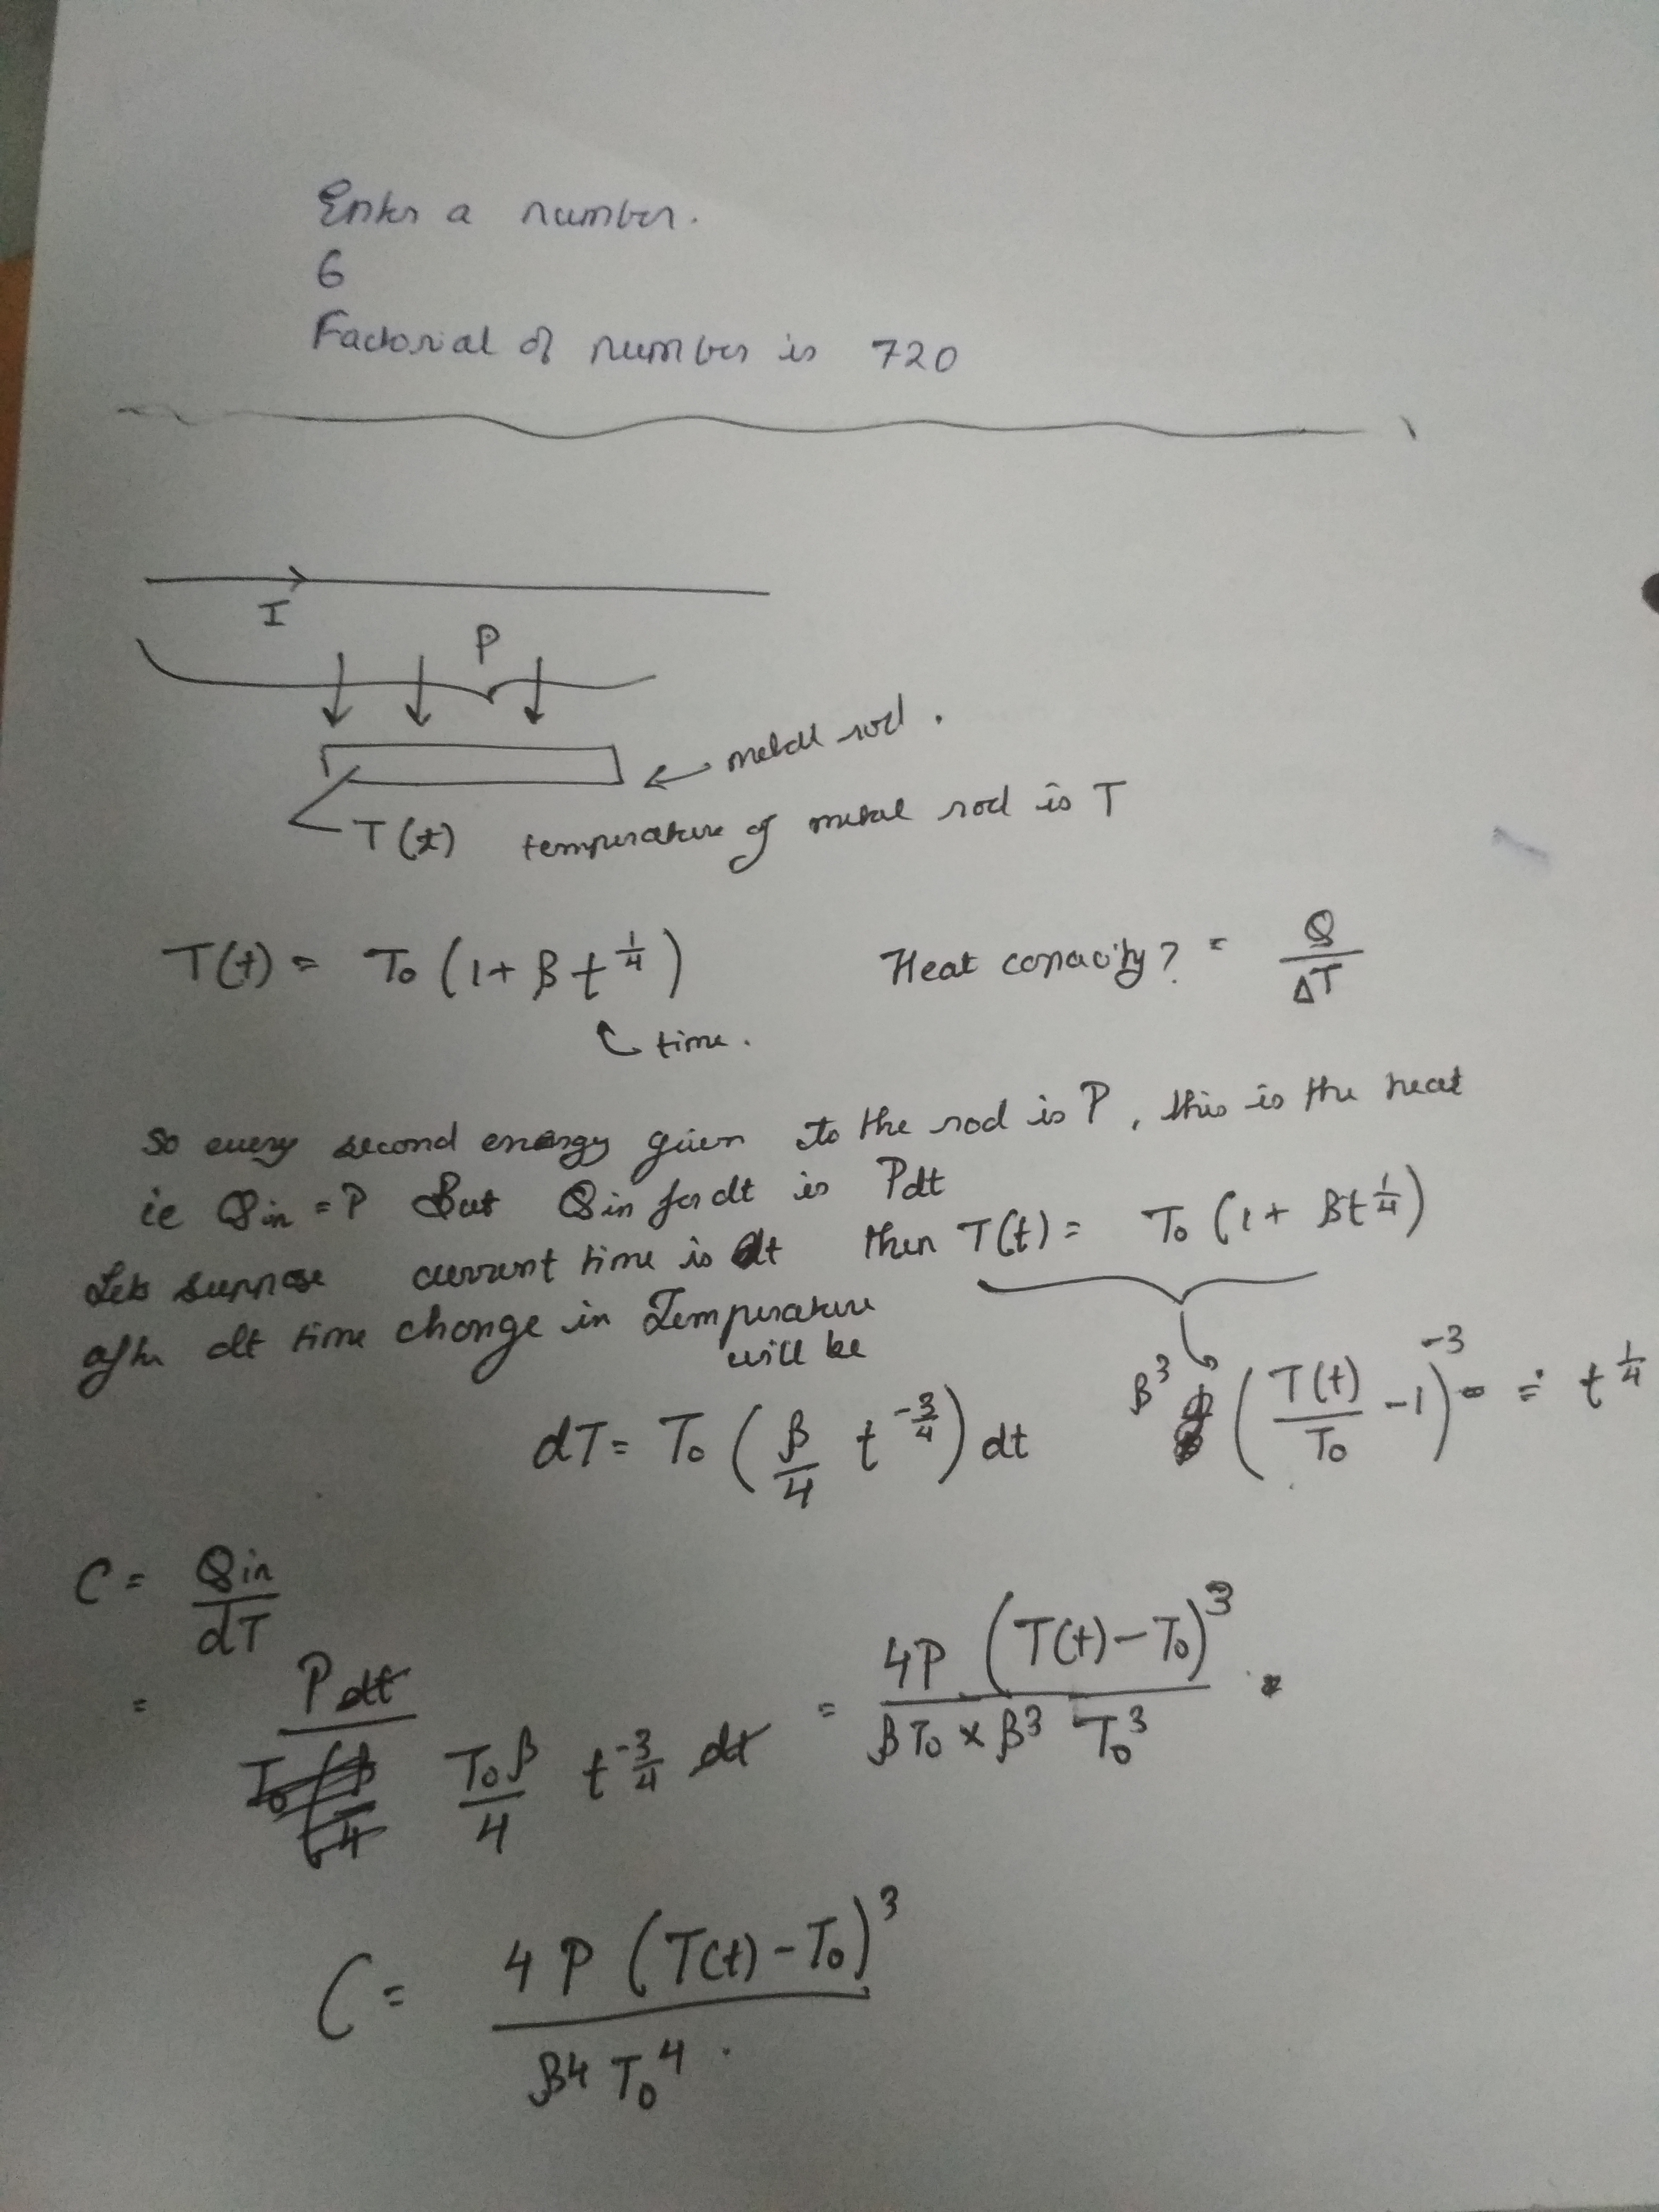 Enter a number.
6
Factorial of number is 720
I
P
metal rod.
T(t) temperature of metal rod is T
T(t) = T₀ (1 + β t^{1/4})
Heat capacity? = Q/ΔT
time.
So every second energy given to the rod is P, this is the heat
ie Qin = P But Qin for dt is Pdt
Lets suppose current time is t then T(t) = T₀ (1 + βt^{1/4})
after dt time change in Temperature
will be
dT = T₀ (β/4 t^{-3/4}) dt
β³ (T(t)/T₀ - 1)^{-3} = t^{1/4}
C = Qin/dT
= P dt / (T₀β/4 t^{-3/4} dt) = 4P (T(t) - T₀)³ / (βT₀ × β³ T₀³) .
C = 4 P (T(t) - T₀)³ / (β⁴ T₀⁴) .